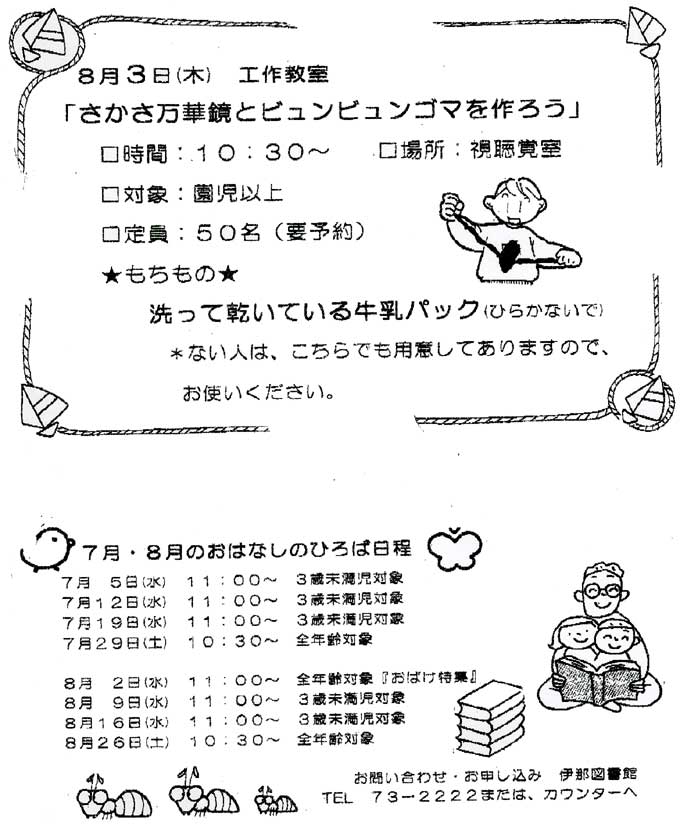 8月3日(木) 工作教室
「さかさ万華鏡とビュンビュンゴマを作ろう」
□時間:10:30～ □場所:視聴覚室
□対象:園児以上
□定員:50名(要予約)
★もちもの★
洗って乾いている牛乳パック(ひらかないで)
*ない人は、こちらでも用意してありますので、
お使いください。
7月・8月のおはなしのひろば日程
7月 5日(水) 11:00～ 3歳未満児対象
7月12日(水) 11:00～ 3歳未満児対象
7月19日(水) 11:00～ 3歳未満児対象
7月29日(土) 10:30～ 全年齢対象
8月 2日(水) 11:00～ 全年齢対象『おばけ特集』
8月 9日(水) 11:00～ 3歳未満児対象
8月16日(水) 11:00～ 3歳未満児対象
8月26日(土) 10:30～ 全年齢対象
お問い合わせ・お申し込み 伊那図書館
TEL 73-2222または、カウンターへ